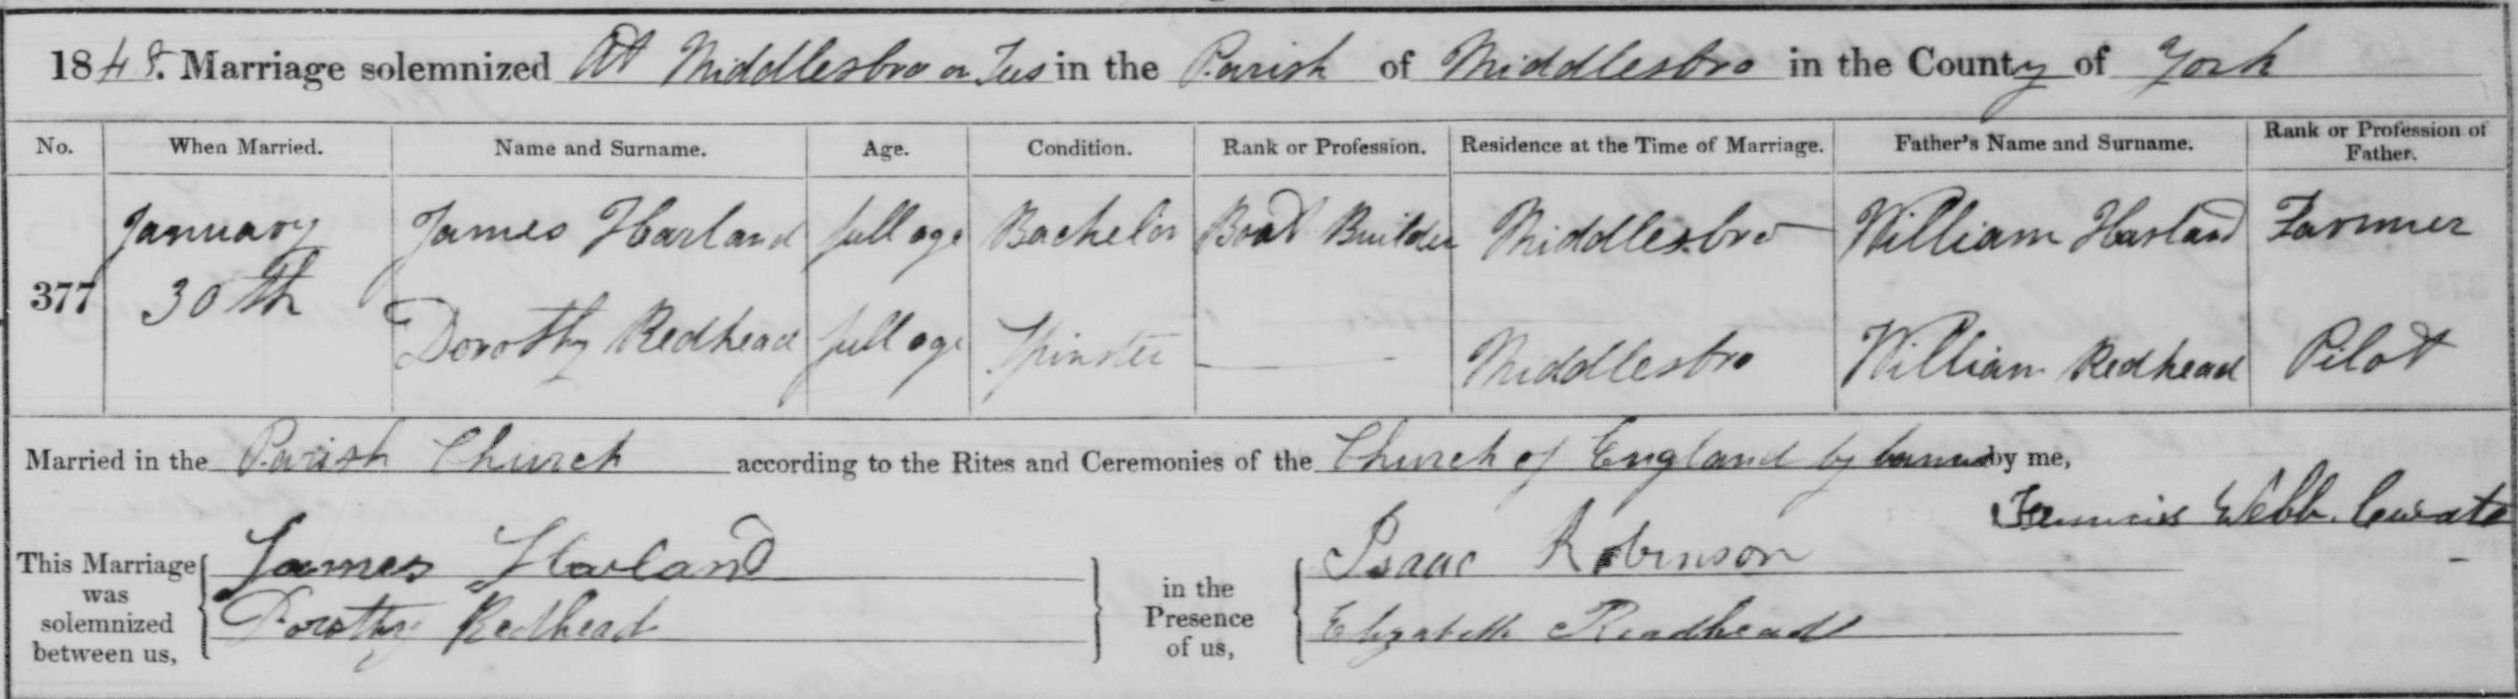 1848. Marriage solemnized At Middlesbro on Tees in the Parish of Middlesbro in the County of York
No. When Married. Name and Surname. Age. Condition. Rank or Profession. Residence at the Time of Marriage. Father's Name and Surname. Rank or Profession of Father.
377 January 30th James Harland full age Bachelor Boat Builder Middlesbro William Harland Farmer
Dorothy Redhead full age Spinster — Middlesbro William Redhead Pilot
Married in the Parish Church according to the Rites and Ceremonies of the Church of England by banns by me,
Francis Webb. Curate
This Marriage was solemnized between us, James Harland in the Presence of us, Isaac Robinson
Dorothy Redhead Elizabeth Readhead